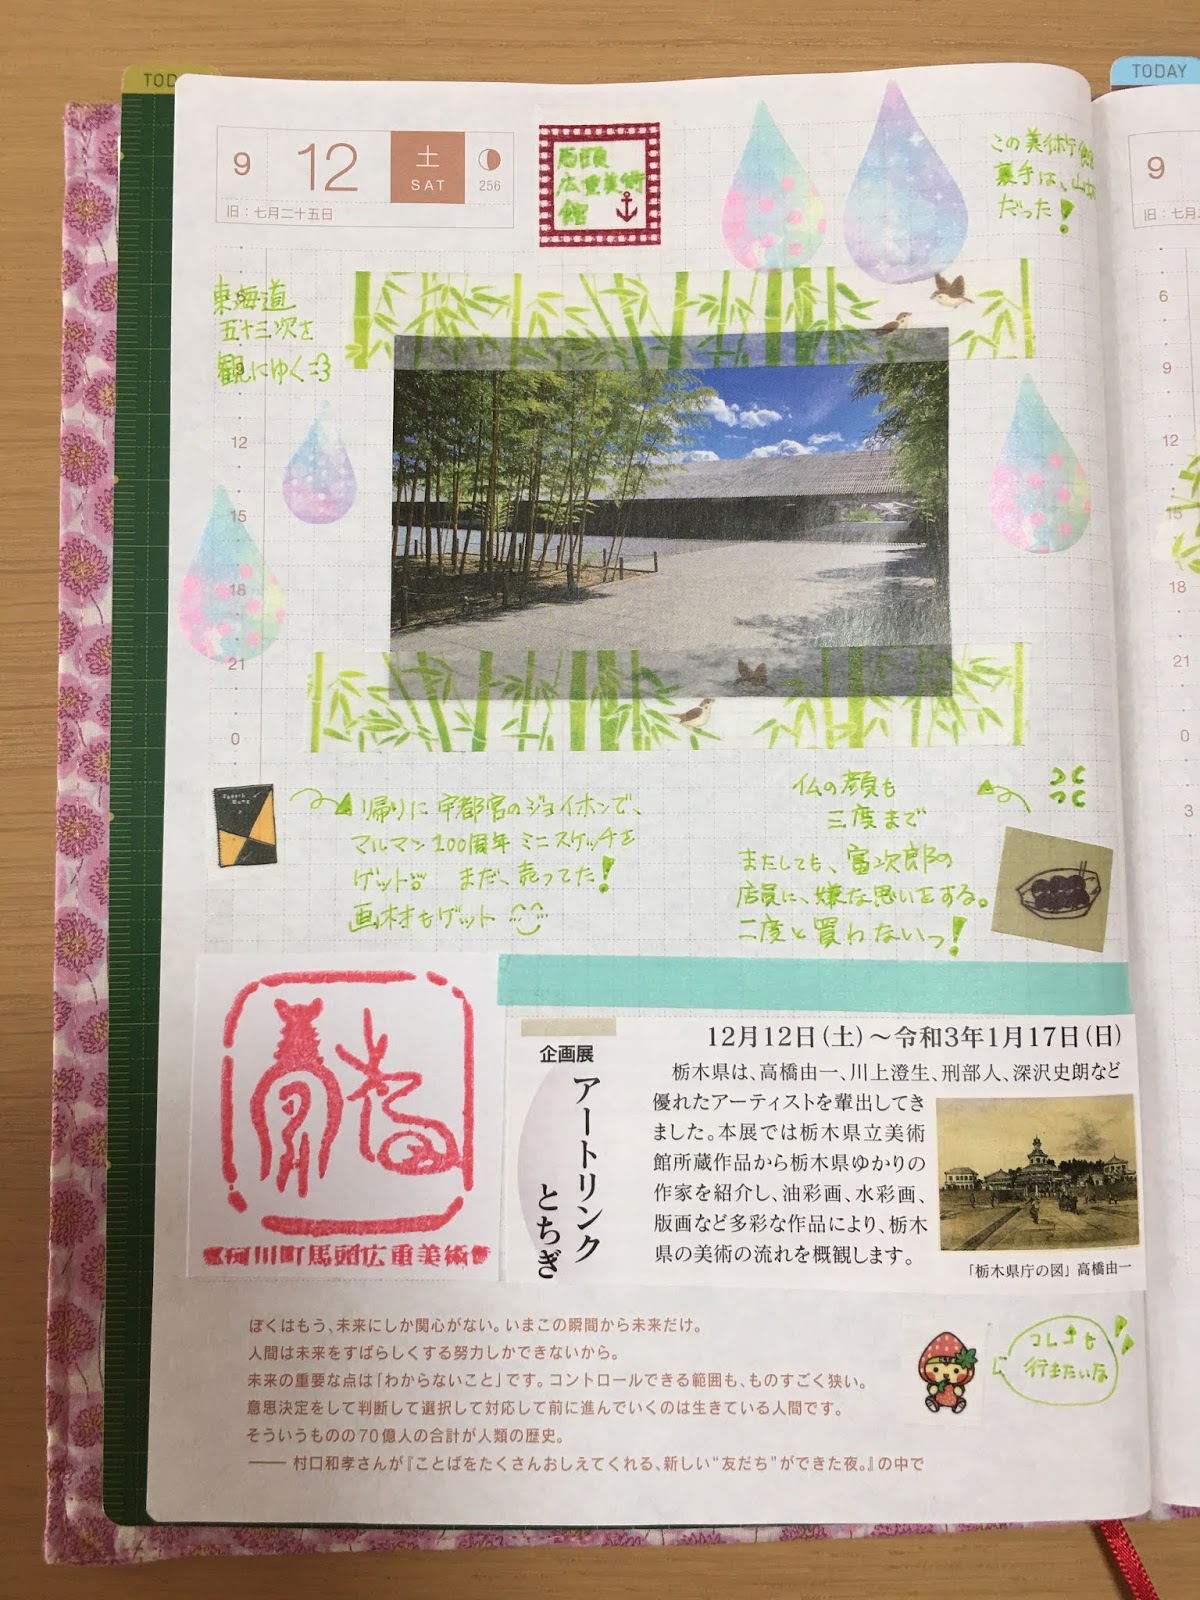 TODAY
9 12 土 SAT 256
旧：七月二十五日
馬頭
広重美術
館
この美術館
裏手は、山
だった！
東海道
五十三次を
観にゆく
12
15
18
21
0
帰りに宇都宮のジョイホンで、
マルマン100周年ミニスケッチを
ゲット まだ、売ってた！
画材もゲット
仏の顔も
三度まで
またしても、富次郎の
店員に、嫌な思いをする。
二度と買わないっ！
那珂川町馬頭広重美術館
12月12日（土）～令和3年1月17日（日）
企画展
アートリンク
とちぎ
栃木県は、高橋由一、川上澄生、刑部人、深沢史朗など
優れたアーティストを輩出してき
ました。本展では栃木県立美術
館所蔵作品から栃木県ゆかりの
作家を紹介し、油彩画、水彩画、
版画など多彩な作品により、栃木
県の美術の流れを概観します。
「栃木県庁の図」高橋由一
コレも
行きたいな
ぼくはもう、未来にしか関心がない。いまこの瞬間から未来だけ。
人間は未来をすばらしくする努力しかできないから。
未来の重要な点は「わからないこと」です。コントロールできる範囲も、ものすごく狭い。
意思決定をして判断して選択して対応して前に進んでいくのは生きている人間です。
そういうものの70億人の合計が人類の歴史。
――村口和孝さんが『ことばをたくさんおしえてくれる、新しい“友だち”ができた夜。』の中で
TODAY
9
旧：七月
6
9
12
15
18
21
0
3